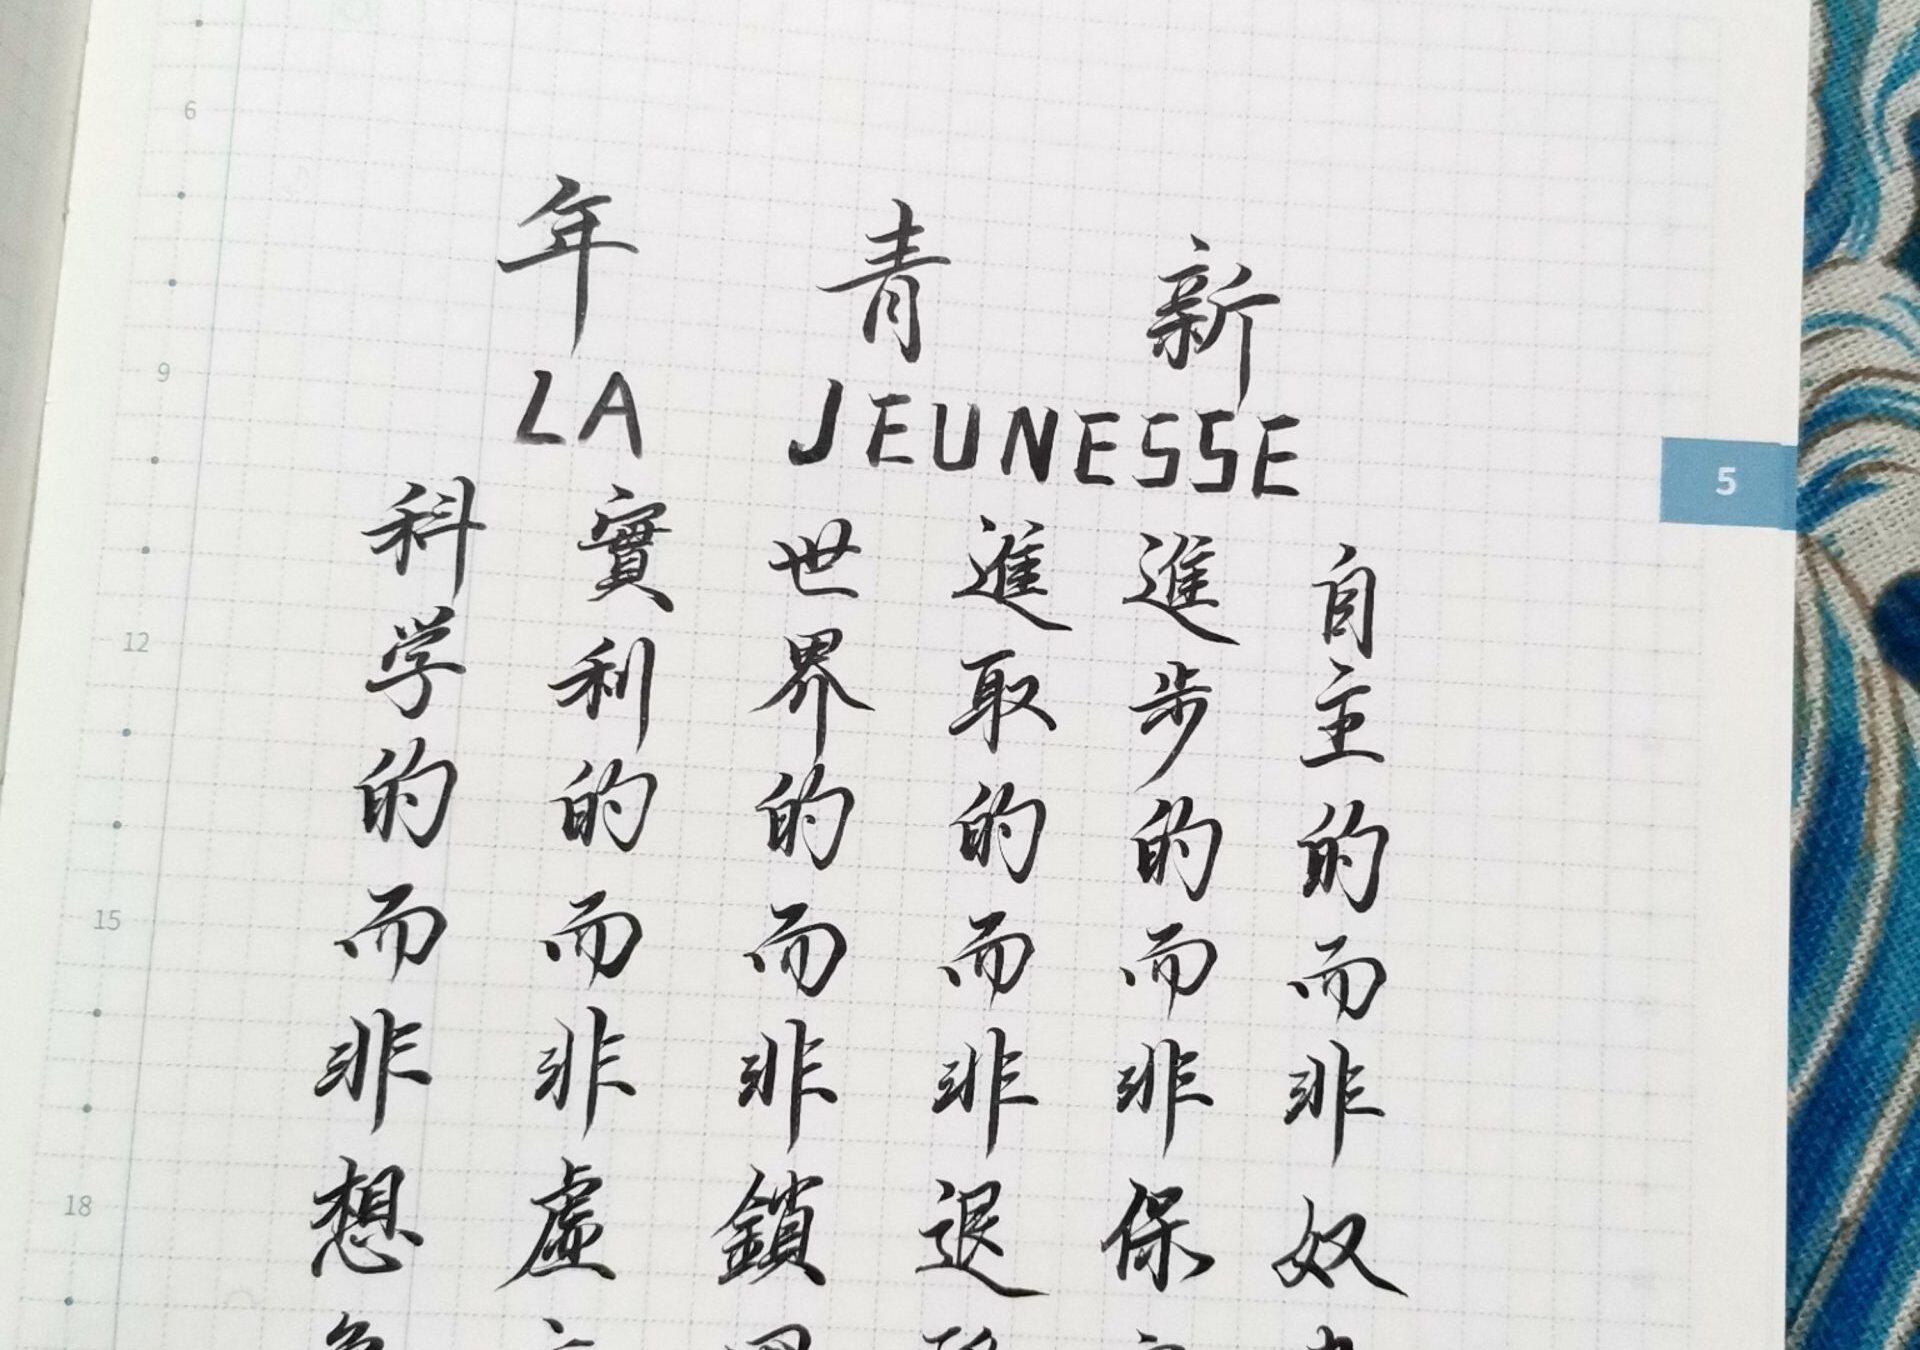 新青年
LA JEUNESSE
自主的而非奴
進步的而非保
進取的而非退
世界的而非鎖
實利的而非虛
科学的而非想
5
6
9
12
15
18